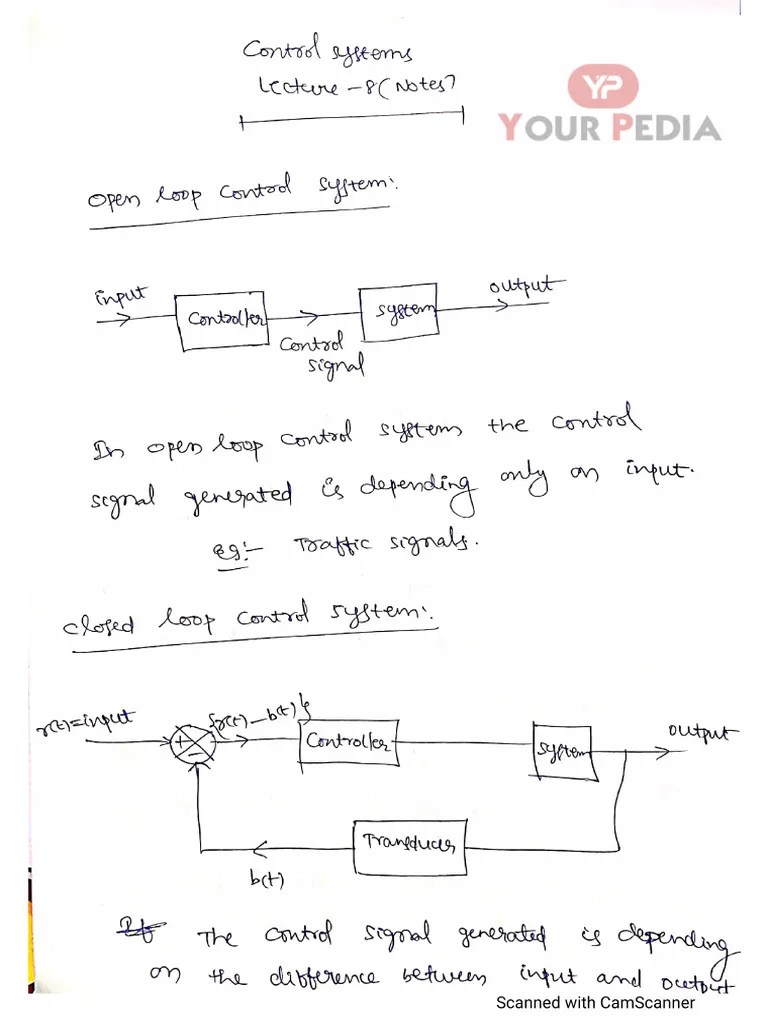 Control systems
Lecture - 8 (Notes)
YP
YOUR PEDIA
Open loop control system:
input
Controller
control
signal
system
output
In open loop control system the control
signal generated is depending only on input.
eg:- Traffic signals.
closed loop control system:
r(t)=input
+
-
{r(t)-b(t)}
Controller
System
output
Transducer
b(t)
The control signal generated is depending
on the difference between input and output
Scanned with CamScanner